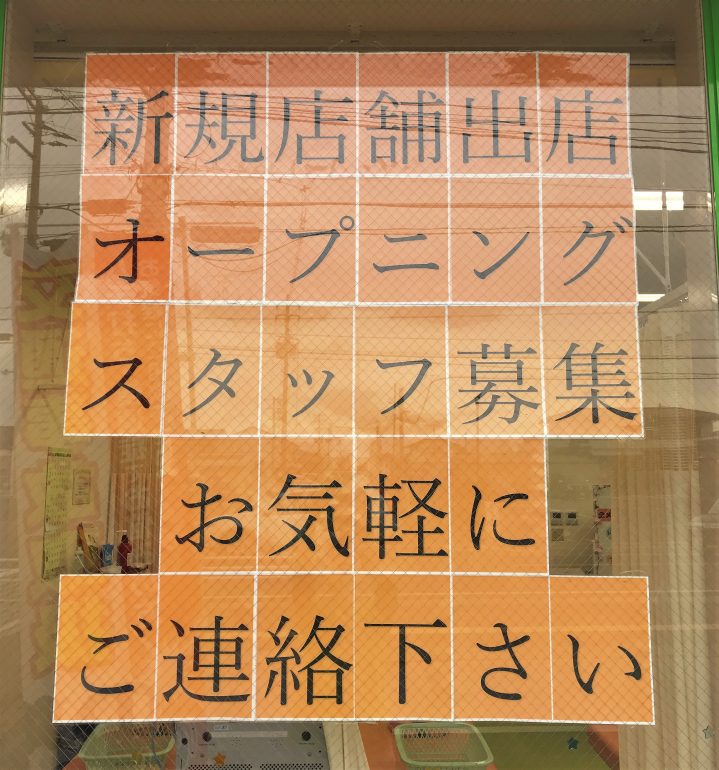 新規店舗出店
オープニング
スタッフ募集
お気軽に
ご連絡下さい